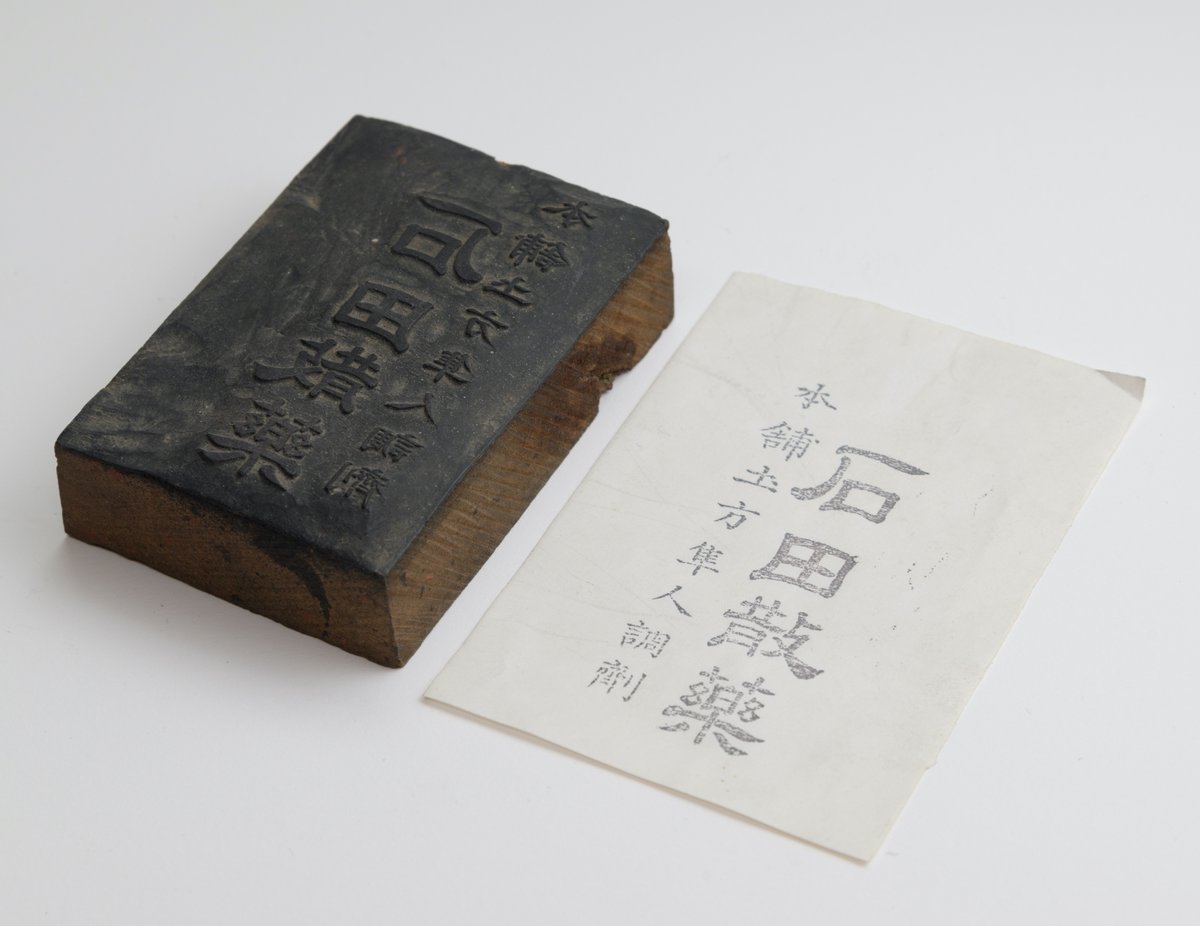 石田散藥
本舗土方隼人調劑
石田散藥
本舗土方隼人調劑